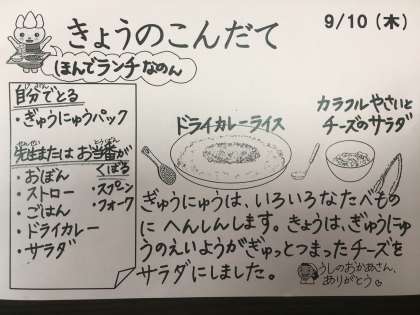 きょうのこんだて
9/10（木）
ほんでランチなのん
自分でとる
・ぎゅうにゅうパック
先生または お当番が
くばる
・おぼん
・ストロー
・ごはん
・ドライカレー
・サラダ
・スプーン
・フォーク
ドライカレーライス
カラフルやさいと
チーズのサラダ
ぎゅうにゅうは、いろいろなたべもの
に へんしんします。きょうは、ぎゅうにゅ
うのえいようがぎゅっとつまったチーズを
サラダにしました。
うしのおかあさん、
ありがとう